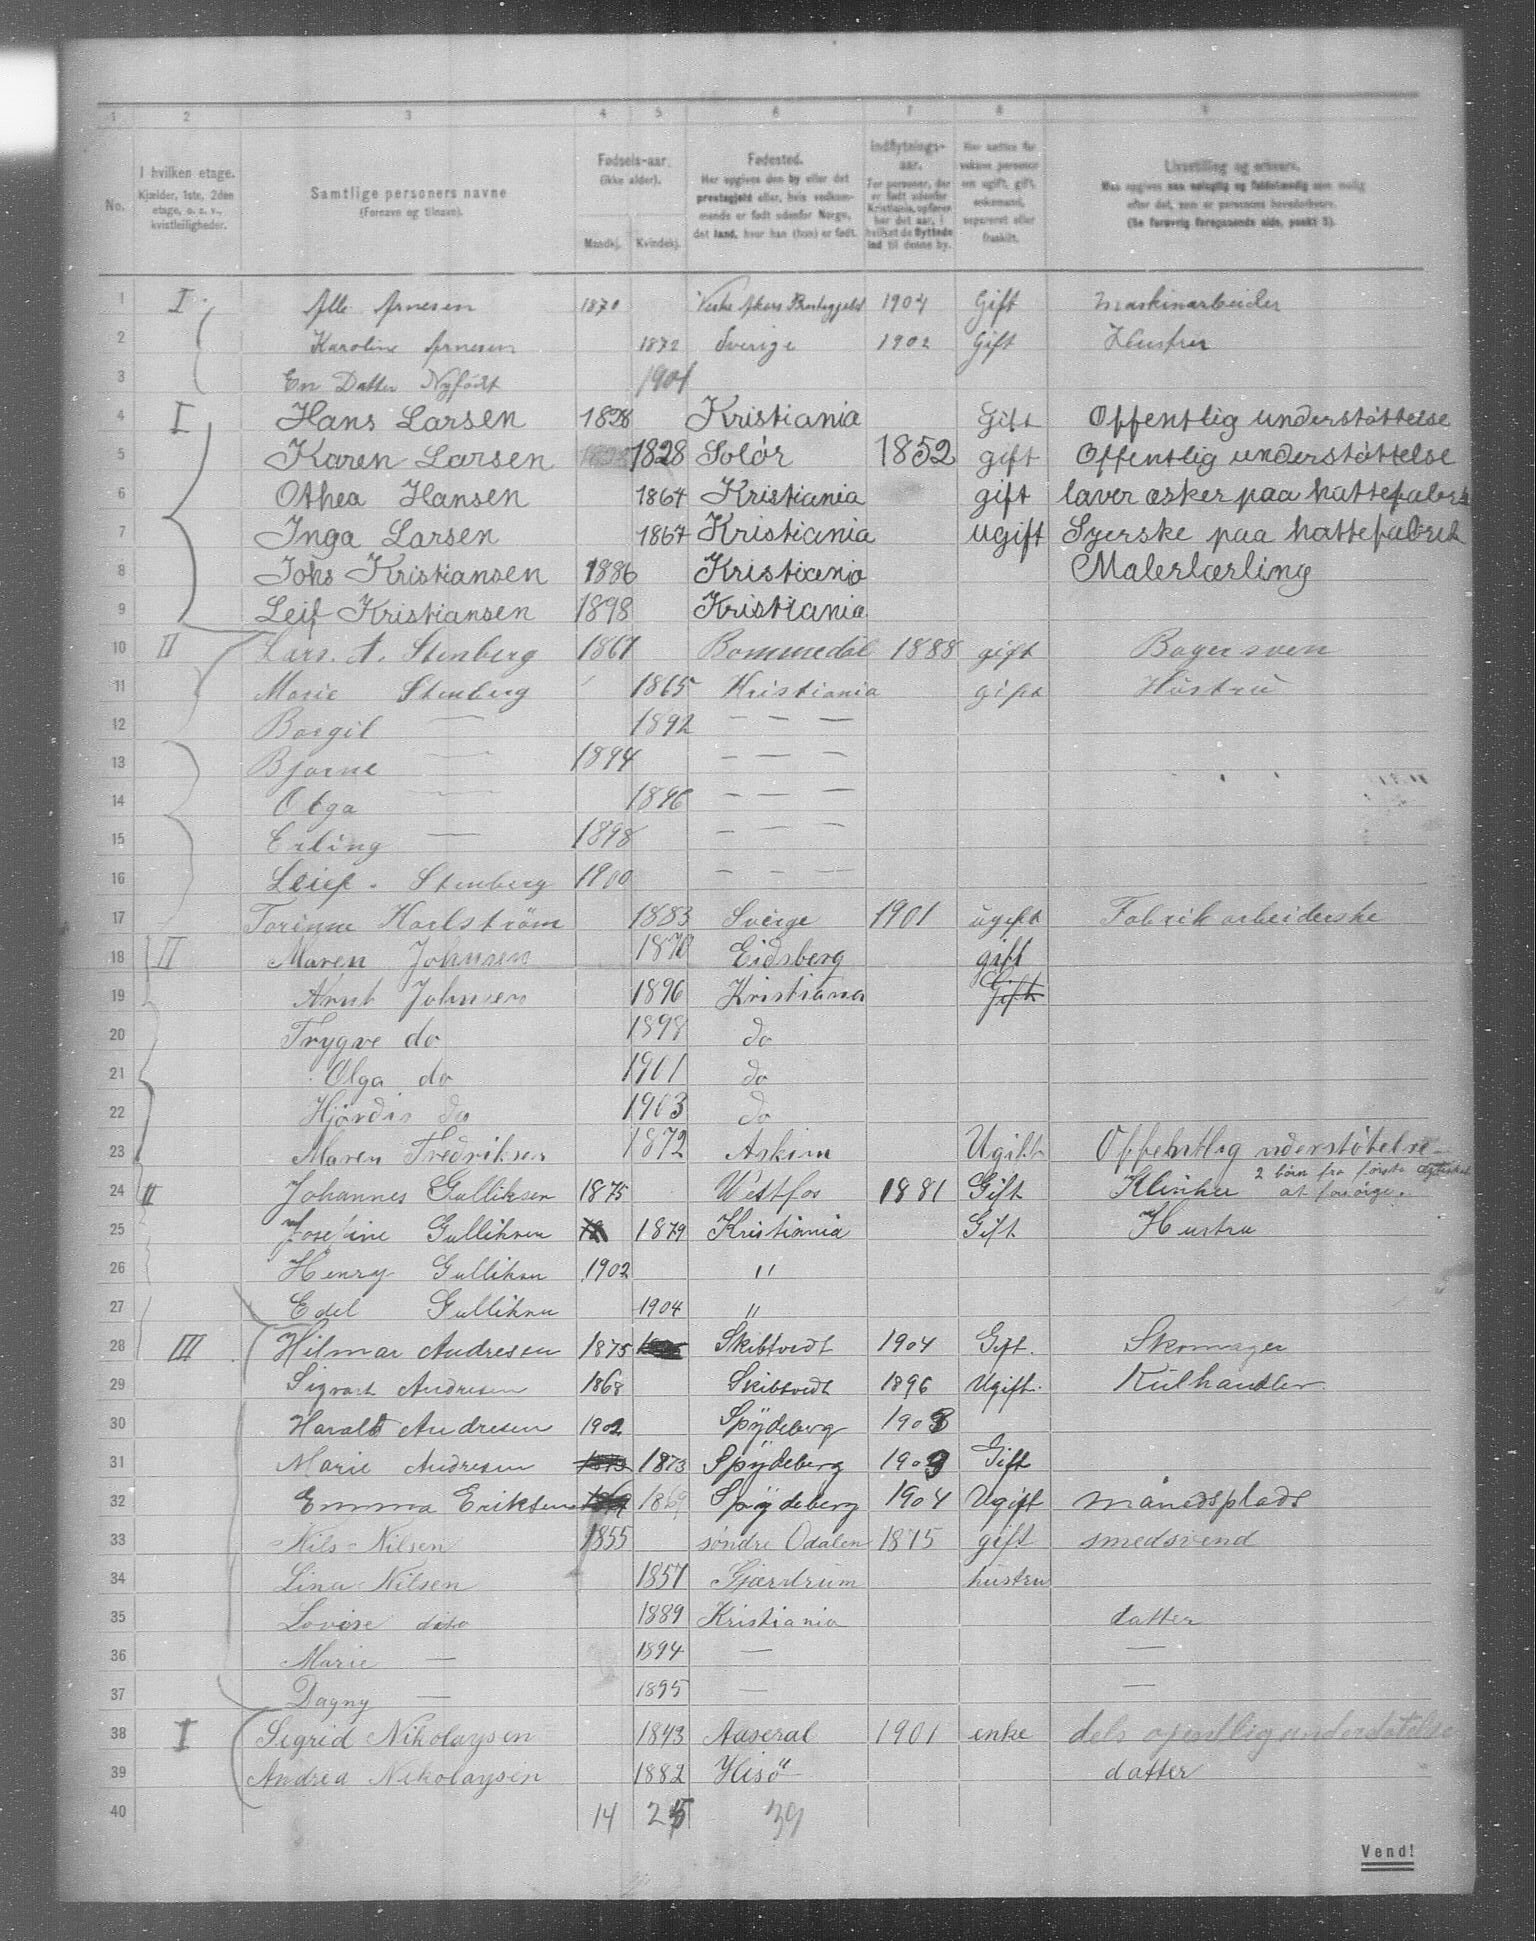 1 2 3 4 5 6 7 8 9
No.
I hvilken etage.
Kjælder, 1ste, 2den
etage, o. s. v.,
kvistleiligheder.
Samtlige personers navne
(Fornavn og tilnavn).
Fødsels-aar.
(ikke alder).
Mandkj. Kvindekj.
Fødested.
Her opgives den by eller det
prestegjeld eller, hvis vedkom-
mende er født udenfor Norge,
det land, hvor han (hun) er født.
Indflytnings-
aar.
For personer, der
er født udenfor
Kristiania, opføres
her det aar, i
hvilket de flyttede
ind til denne by.
Her sættes for
voksne personer
om ugift, gift,
enkemand,
separeret eller
fraskilt.
Livsstilling og erhverv.
Maa opgives saa nøiagtig og fuldstændig som mulig
efter det, som er personens hovederhverv.
(Se forøvrig foregaaende side, punkt 3).
1 I Arnesen 1870 Vestre Akers Prestegjeld 1904 Gift Maskinarbeider
2 Karoline Arnesen 1872 Sverige 1902 Gift Hustru
3 En Datter Nyfødt 1904
4 I Hans Larsen 1828 Kristiania Gift Offentlig understøttelse
5 Karen Larsen 1828 Solør 1852 gift Offentlig understøttelse
6 Othea Hansen 1864 Kristiania gift laver æsker paa hattefabrik
7 Inga Larsen 1867 Kristiania ugift Syerske paa hattefabrik
8 Johs Kristiansen 1886 Kristiania Malerlærling
9 Leif Kristiansen 1898 Kristiania
10 II Lars. A. Stenberg 1861 Bommedal 1888 gift Bagersven
11 Marie Stenberg 1865 Kristiania gift Hustru
12 Borgil — 1892 — — —
13 Bjarne — 1894 — — —
14 Olga — 1896 — — —
15 Erling — 1898 — — —
16 Leief. Stenberg 1900 — — —
17 Torinne Karlström 1883 Sverge 1901 ugift Fabrik arbeiderske
18 II Maren Johnsen 1870 Eidsberg gift
19 Arnt Johnsen 1896 Kristiania Gift
20 Trygve do 1898 do
21 Olga do 1901 do
22 Hjördis do 1903 do
23 Maren Fredriksen 1872 Askim Ugift Offentlig understøtelse
24 II Johannes Gulliksen 1875 Vestfos 1881 Gift Klinker 2 børn fra første Ægteskab at forsørge.
25 Josefine Gulliksen 1879 Kristiania Gift Hustru
26 Henry Gulliksen 1902 "
27 Edel Gulliksen 1904 "
28 III Hilmar Andresen 1875 Skibtvedt 1904 Gift. Skomager
29 Sigvart Andresen 1868 Skibtvedt 1896 Ugift. Kulhandler.
30 Harald Andresen 1902 Spydeberg 1903
31 Marie Andresen 1873 1873 Spydeberg 1903 Gift
32 Emma Eriksen 1869 1869 Spydeberg 1904 Ugift månedsplads
33 Nils Nilsen 1855 søndre Odalen 1875 gift smedsvend
34 Lina Nilsen 1857 Gjærdrum hustru
35 Lovise dito 1889 Kristiania datter
36 Marie — 1894 — —
37 Dagny — 1895 — —
38 I Sigrid Nikolaysen 1843 Aaseral 1901 enke dels ofentlig understøtelse
39 Andrea Nikolaysen 1882 Hisö datter
40 14 25 39
Vend!